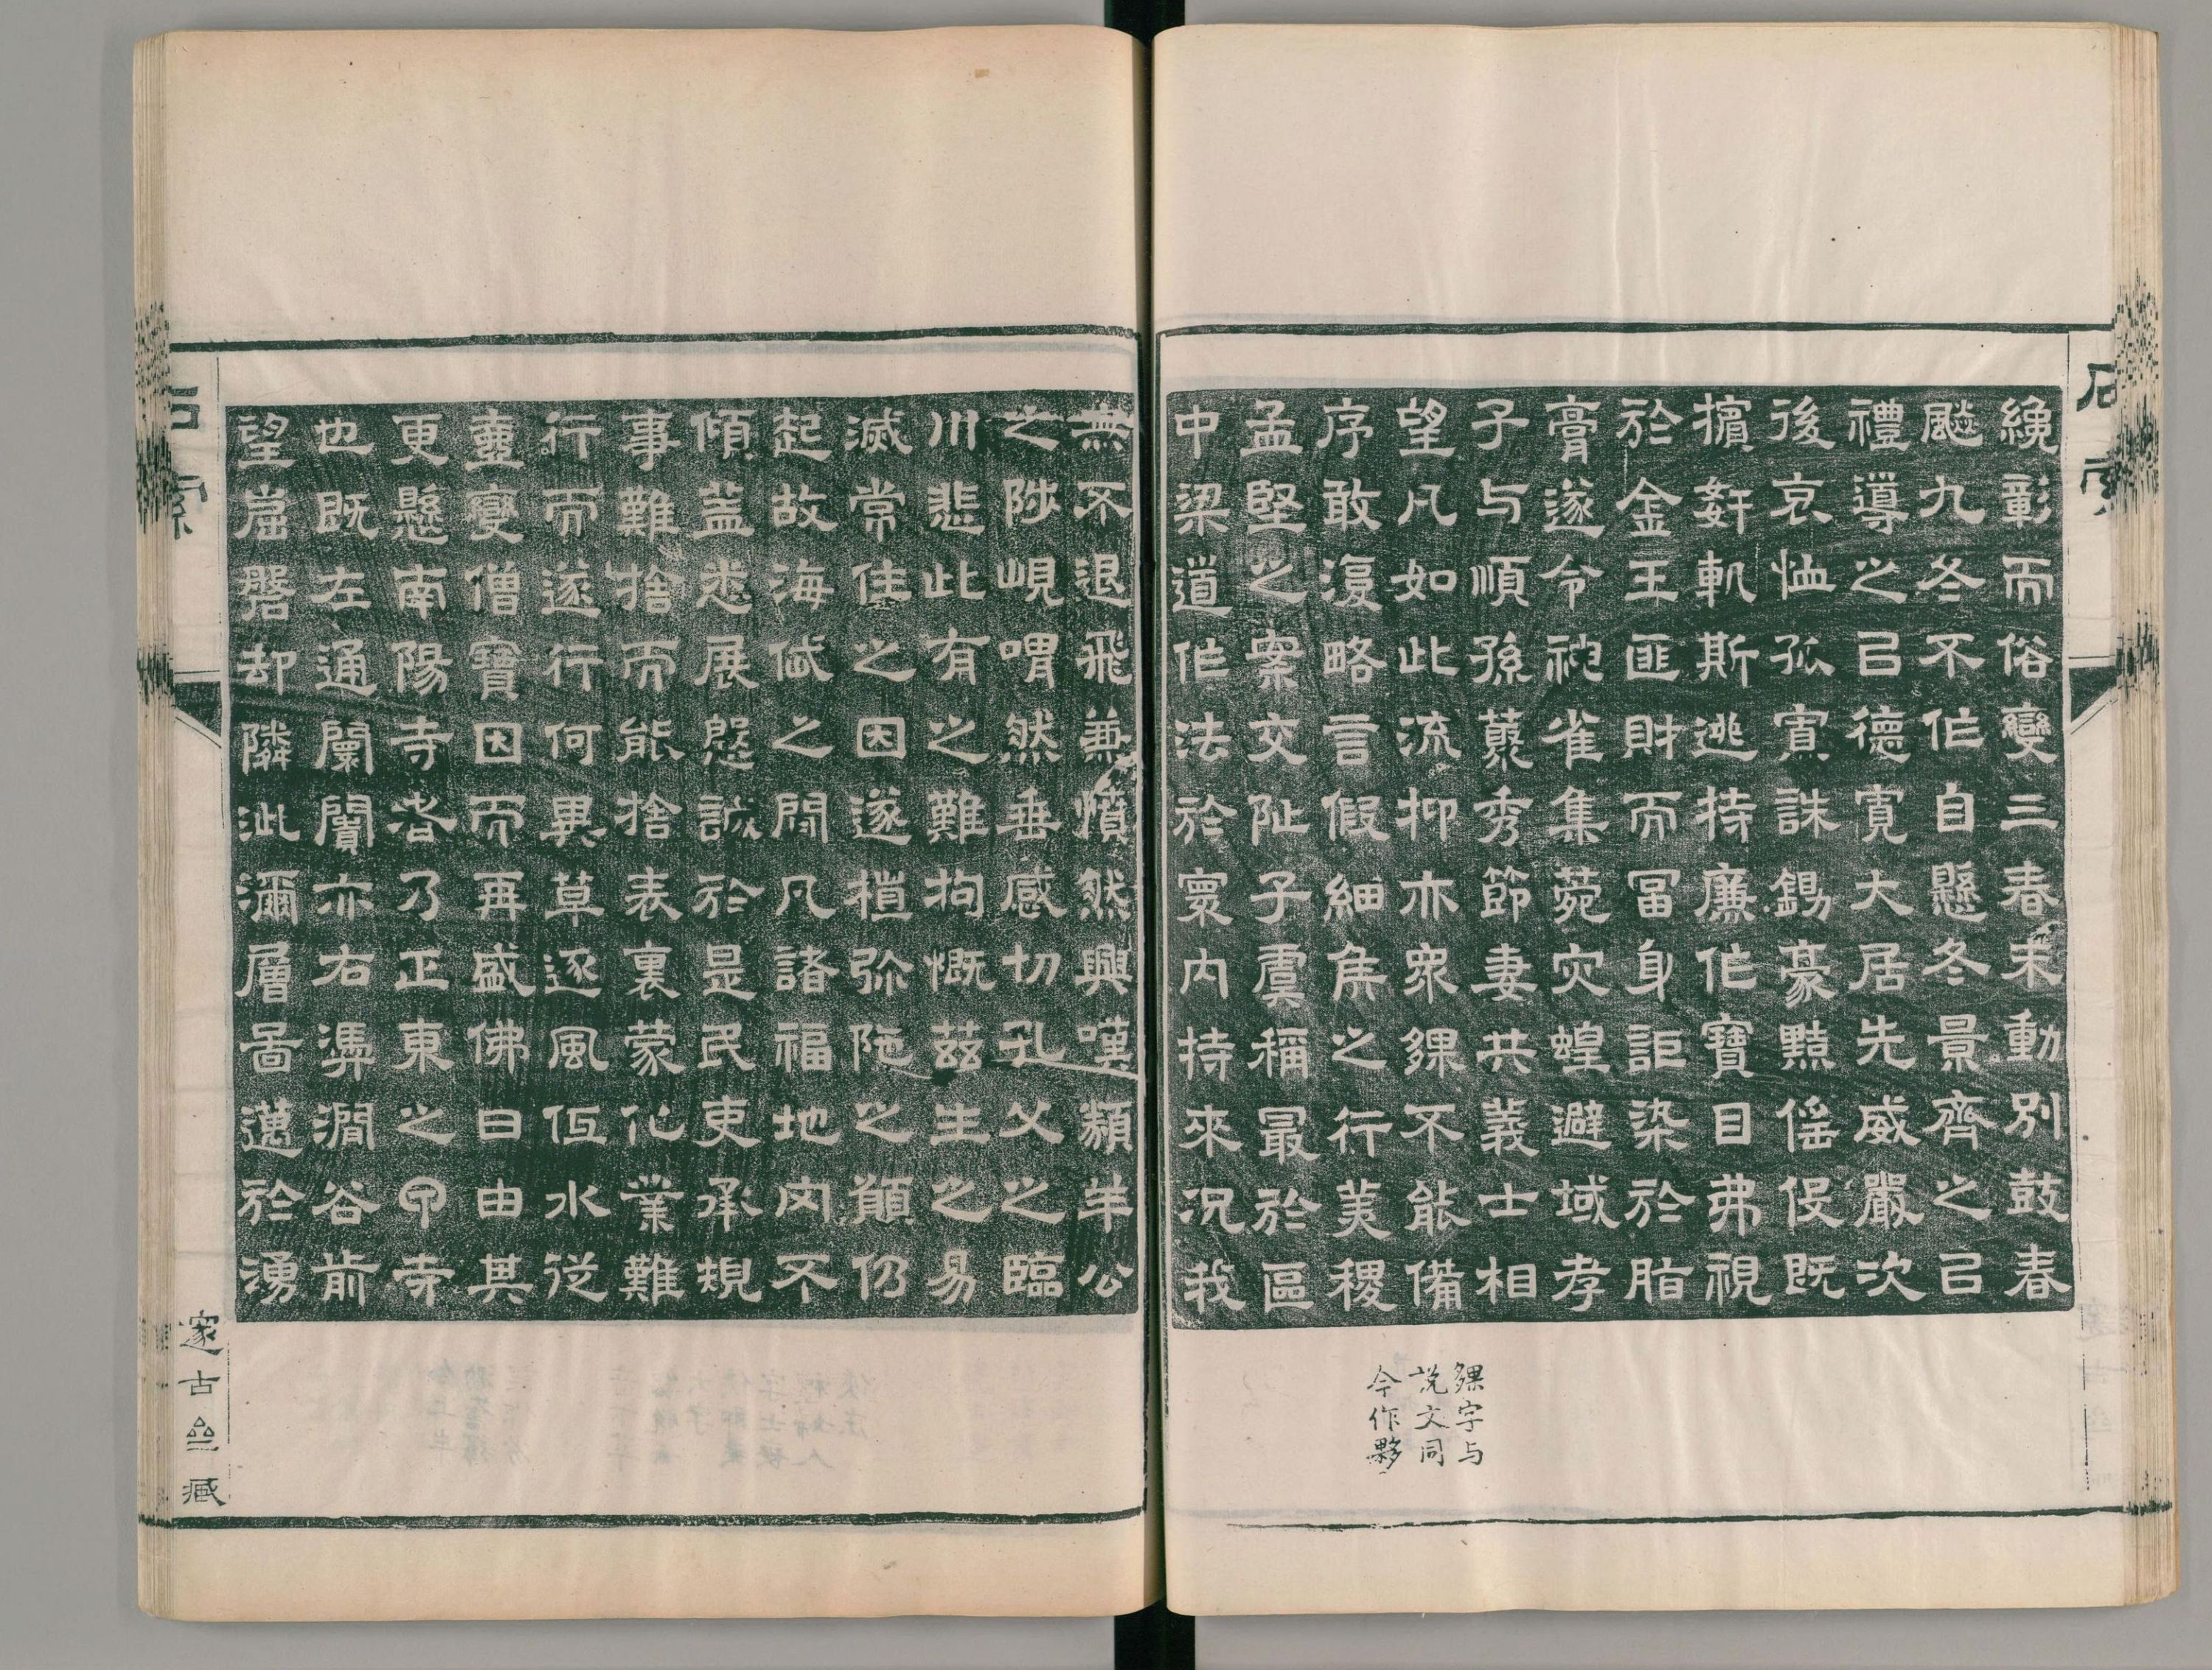 石索
絻彰而俗變三春未動別鼓春
颷九冬不作自懸冬景齊之㠯
禮導之㠯德寬大居先威嚴次
後哀恤孤寡誅鋤豪黠傜役既
擯姧軌斯逃持廉作寶目弗視
於金玉匪財而冨身詎染於脂
膏遂令祝雀集菀灾蝗避域孝
子与順孫藂秀節妻共義士相
望凡如此流抑亦眾錁不能備
序敢復略言假細矦之行美稷
孟堅之案交阯子虞稱最於區
中梁道作法於寰内持來況我
錁字与
説文同
今作夥
無不退飛兼憤然興嘆纇羊公
之陟峴喟然垂感切孔父之臨
川悲此有之難拘慨茲生之易
滅常住之因遂植弥陁之願仍
起故海俶之閒凡諸福地内不
傾蓋悉展慇誠於是民吏承規
事難捨而能捨表裏蒙化業難
行而遂行何異草逐風低水從
靈變僧寶因而再盛佛日由其
更懸南陽寺者乃正東之甲寺
也既左通闤闠亦右溤澗谷前
望嵐磬却隣泚瀰層啚邁於湧
石索
邃古𠫤藏